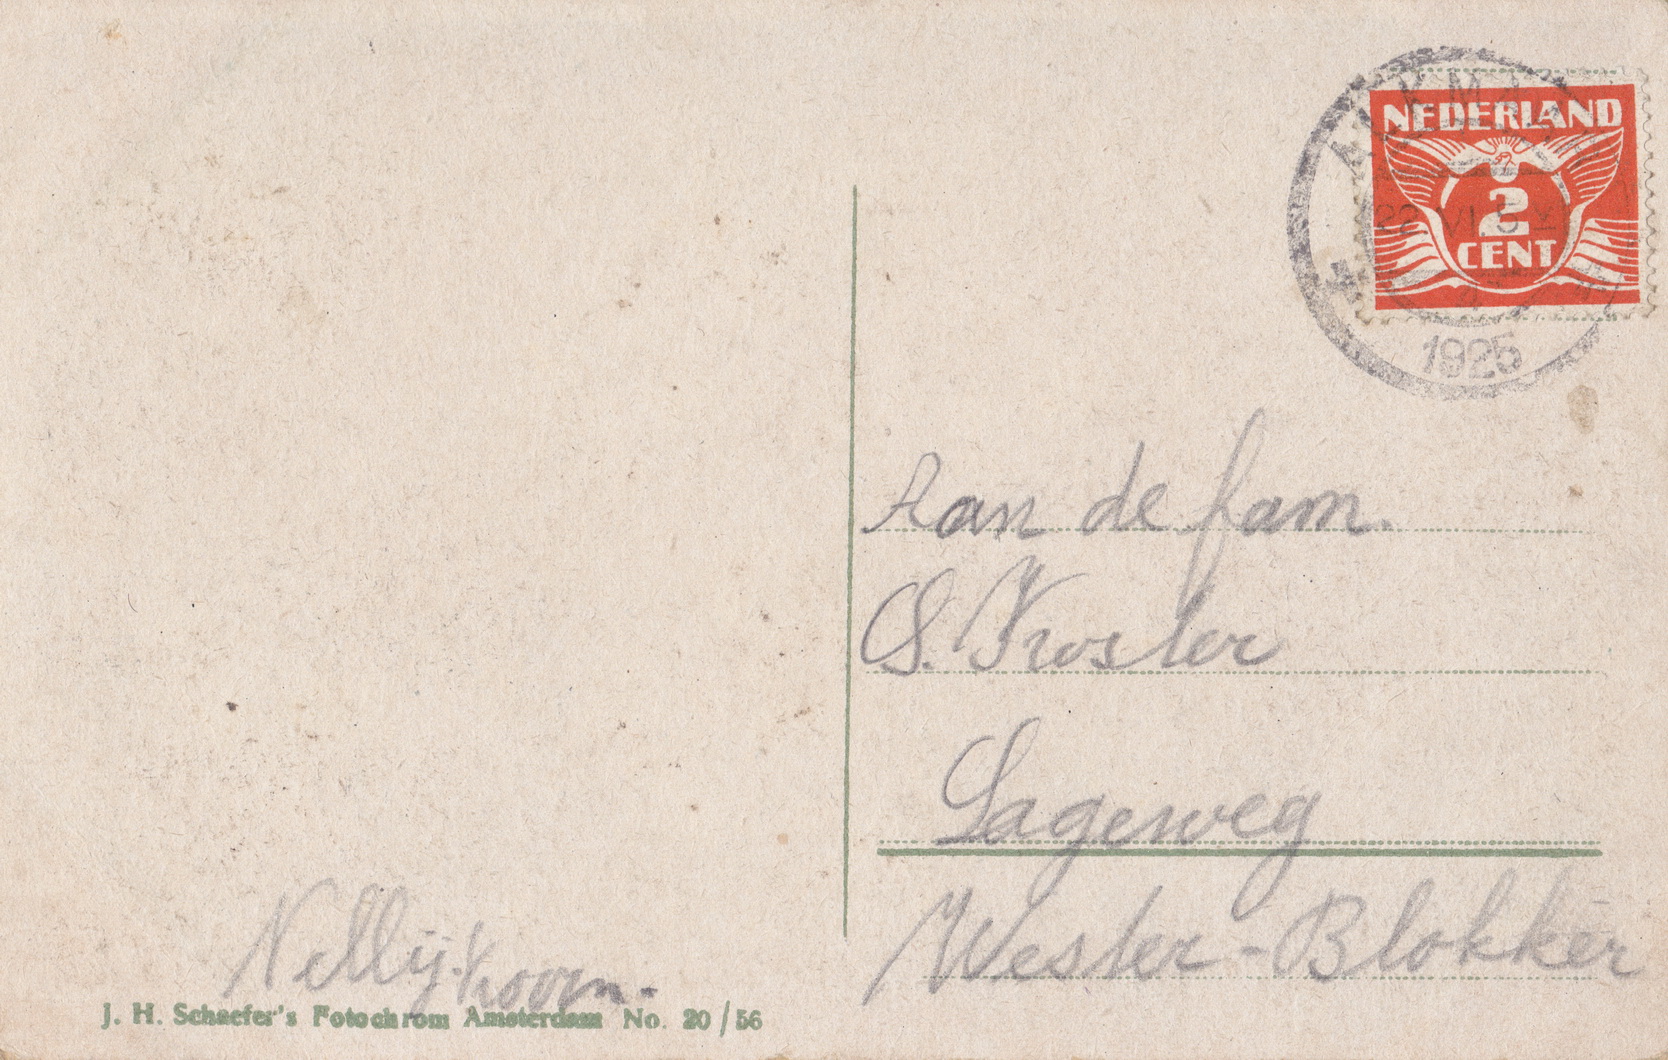 ALKMAAR
NEDERLAND
22 VI 5
2
CENT
1925
Aan de fam.
S. Koster
Lageweg
Wester-Blokker
Nellij
J. H. Schaefer's Fotochrom Amsterdam No. 20/56